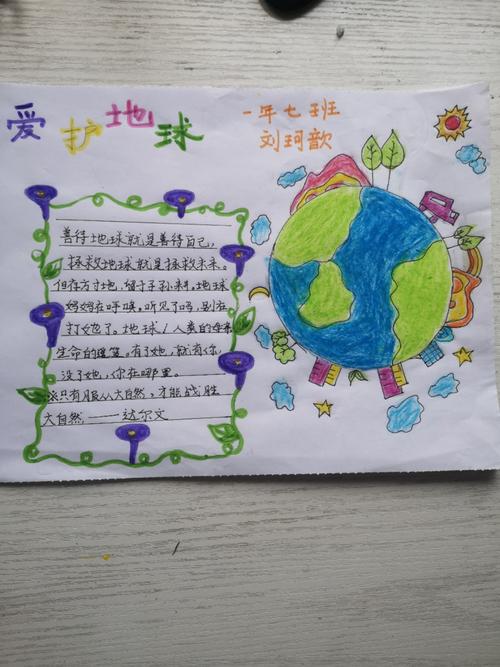 爱护地球
一年七班
刘珂歆
善待地球就是善待自己，
拯救地球就是拯救未来。
但存方寸地，留于子孙耕。地球
妈妈在呼唤。听见了吗，别再
打她了。地球！人类的母亲
生命的摇篮。有了她，就有你，
没了她，你在哪里。
※只有服从大自然，才能战胜
大自然 ——达尔文